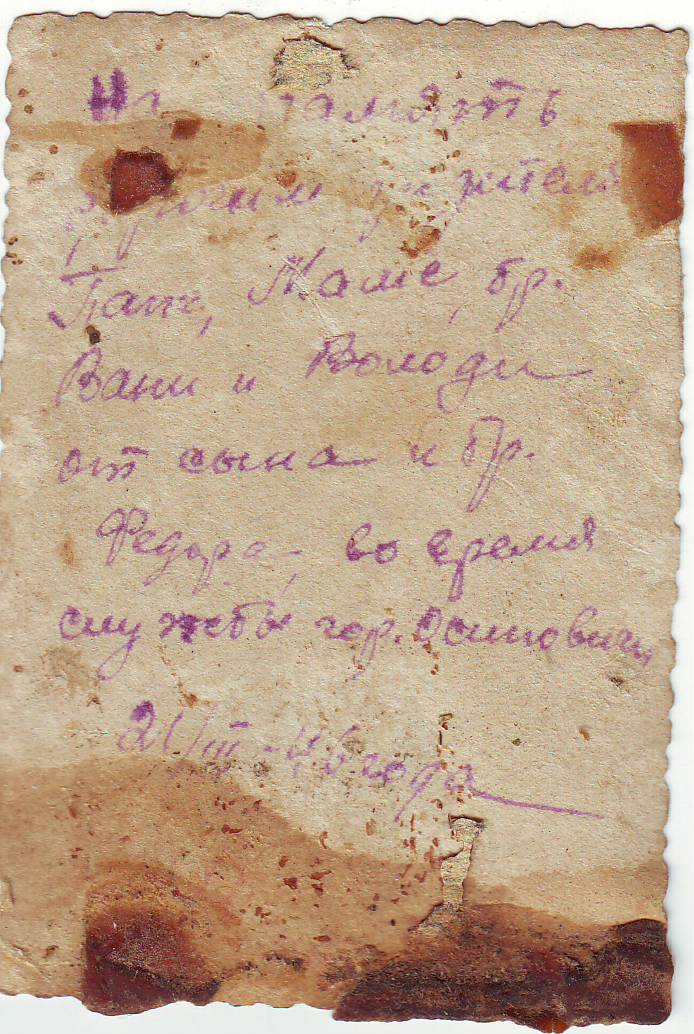 На память
дорогим
Папе, Маме, бр.
Вани и Володи
от сына и бр.
Федора, во время
службы гор. Осиповичи
46 года